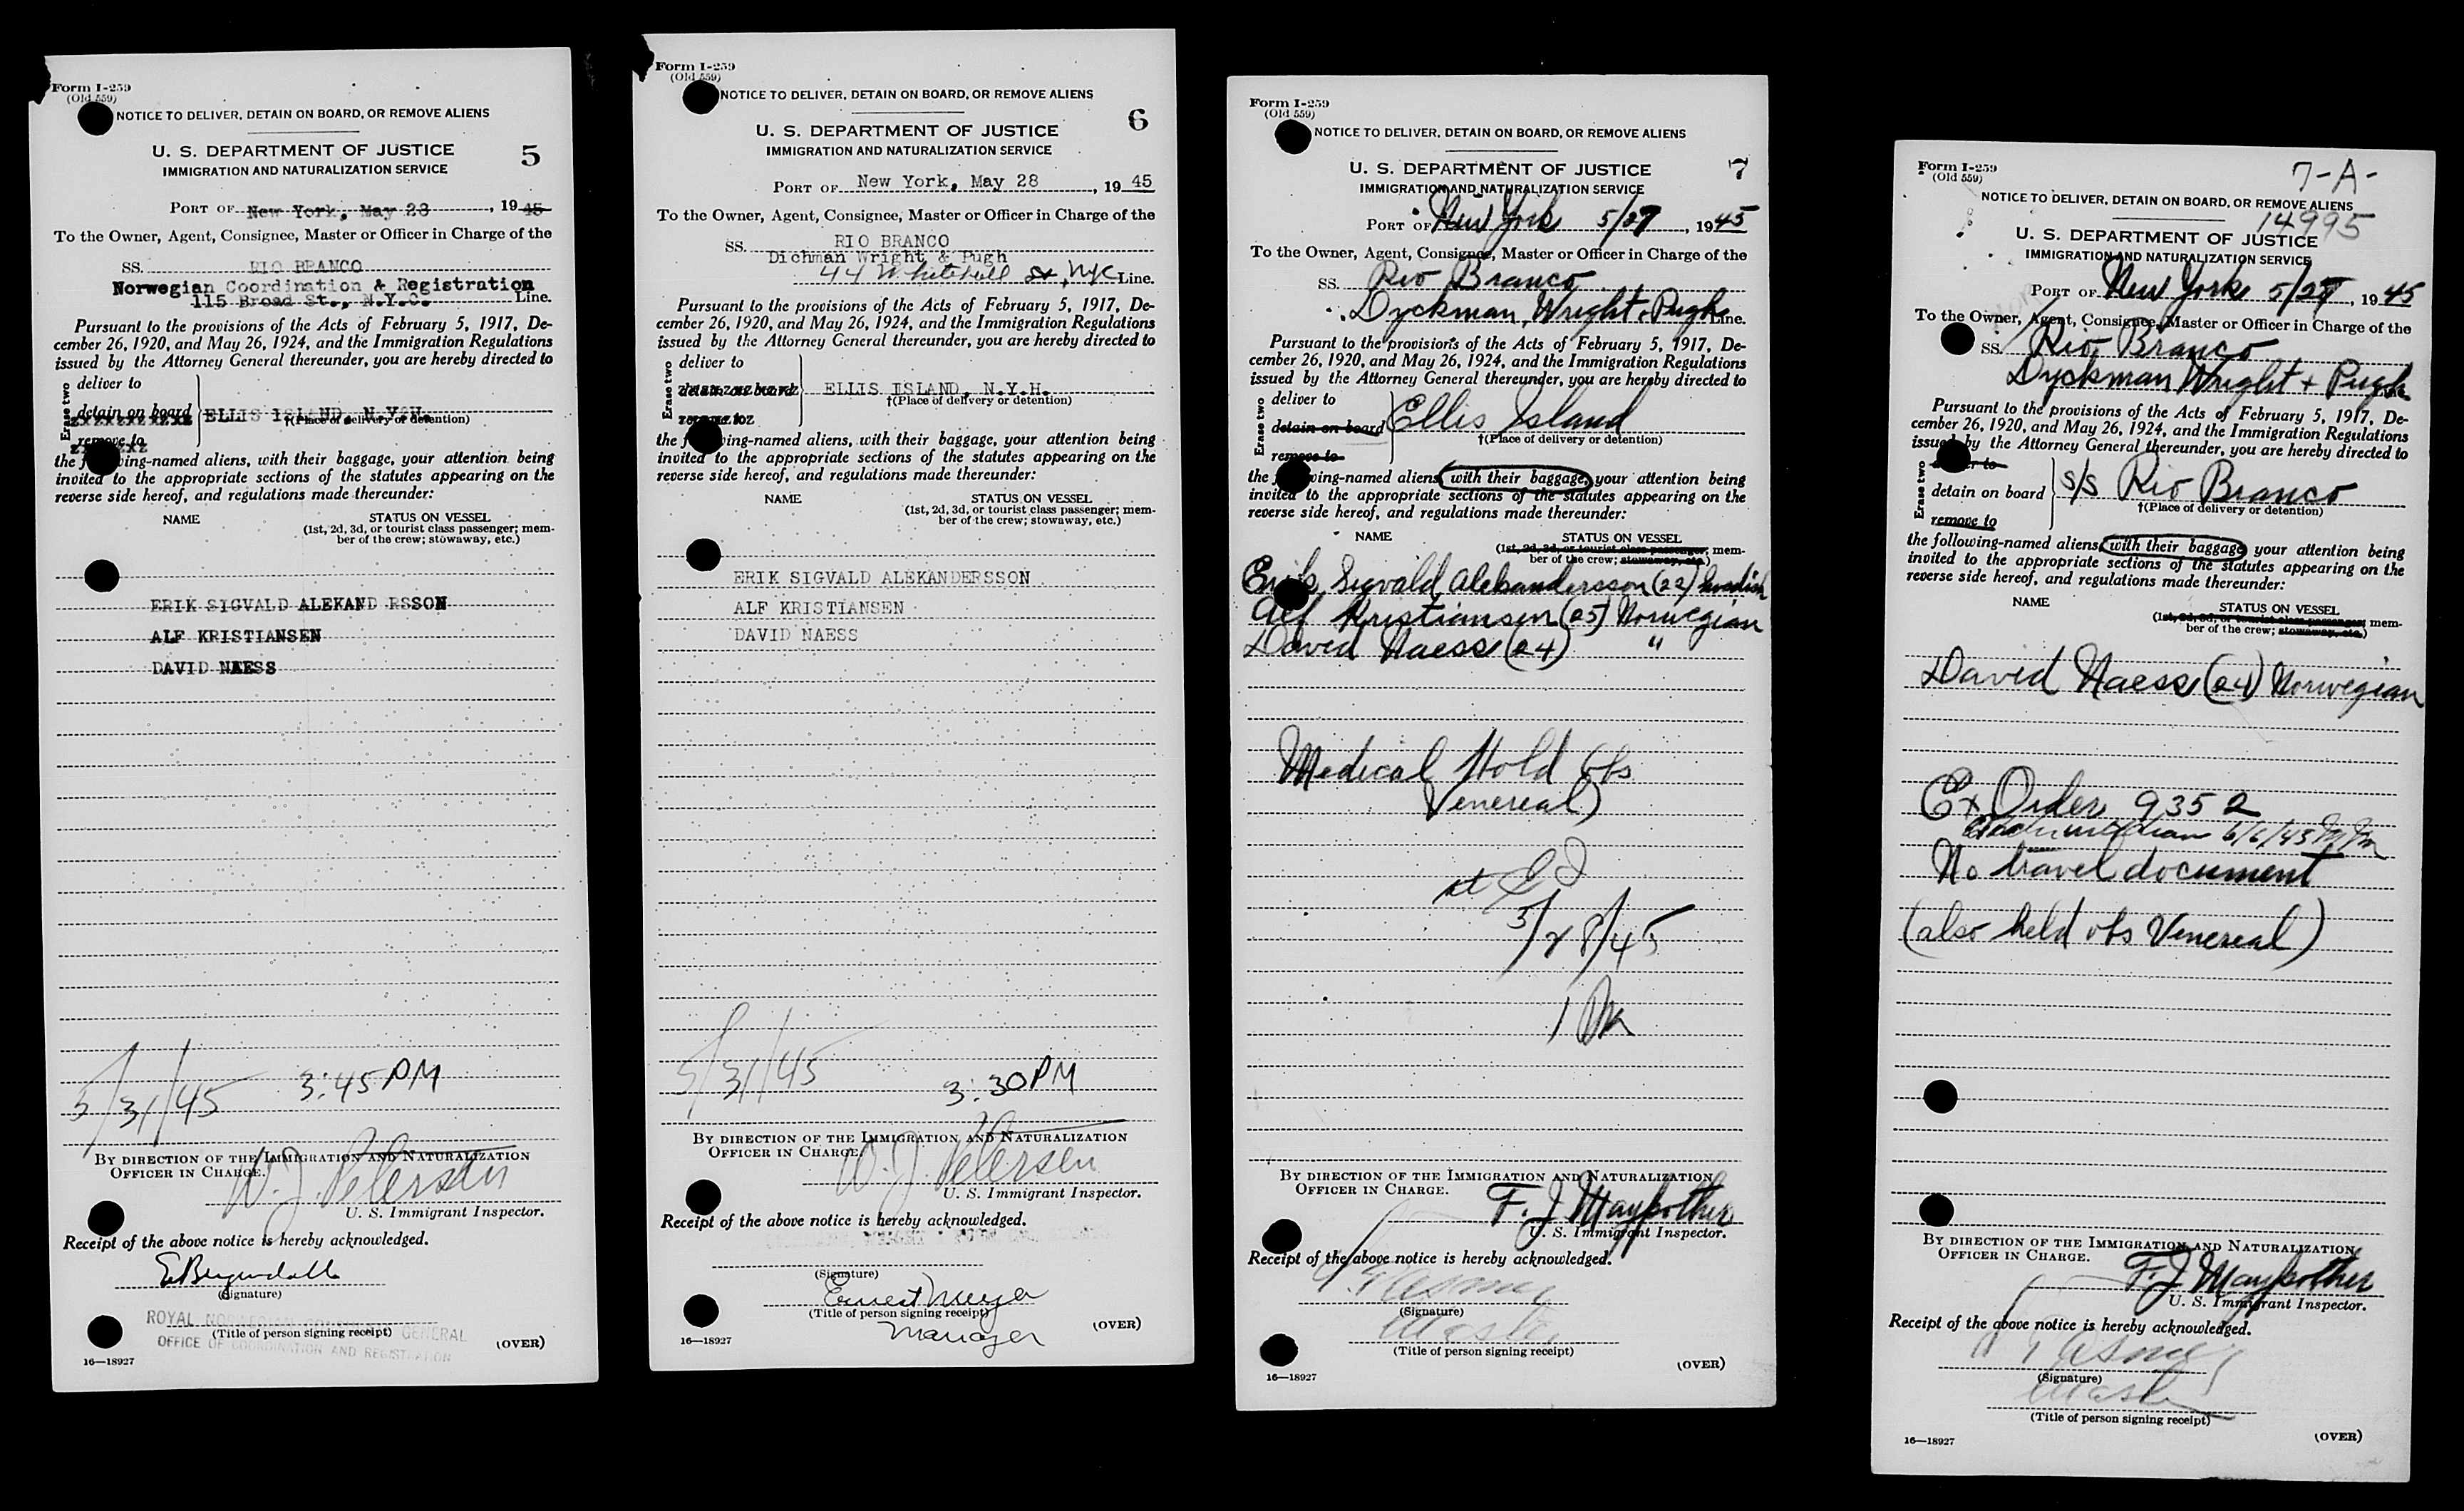 Form I-259
(Old 559)
NOTICE TO DELIVER, DETAIN ON BOARD, OR REMOVE ALIENS
U. S. DEPARTMENT OF JUSTICE
5
IMMIGRATION AND NATURALIZATION SERVICE
PORT OF New York, May 28, 1945
To the Owner, Agent, Consignee, Master or Officer in Charge of the
SS. RIO BRANCO
Norwegian Coordination & Registration
115 Broad St., N.Y.C. Line.
Pursuant to the provisions of the Acts of February 5, 1917, De-
cember 26, 1920, and May 26, 1924, and the Immigration Regulations
issued by the Attorney General thereunder, you are hereby directed to
Erase two
deliver to
detain on board
remove to
ELLIS ISLAND, N.Y.H.
†(Place of delivery or detention)
the following-named aliens, with their baggage, your attention being
invited to the appropriate sections of the statutes appearing on the
reverse side hereof, and regulations made thereunder:
NAME STATUS ON VESSEL
(1st, 2d, 3d, or tourist class passenger; mem-
ber of the crew; stowaway, etc.)
ERIK SIGVALD ALEKAND RSSON
ALF KRISTIANSEN
DAVID NAESS
5/31/45 3:45 PM
BY DIRECTION OF THE IMMIGRATION AND NATURALIZATION
OFFICER IN CHARGE.
W. J. Petersen
U. S. Immigrant Inspector.
Receipt of the above notice is hereby acknowledged.
(Signature)
ROYAL NORWEGIAN CONSULATE GENERAL
(Title of person signing receipt)
OFFICE OF COORDINATION AND REGISTRATION
(OVER)
16—18927
Form I-259
(Old 559)
NOTICE TO DELIVER, DETAIN ON BOARD, OR REMOVE ALIENS
6
U. S. DEPARTMENT OF JUSTICE
IMMIGRATION AND NATURALIZATION SERVICE
PORT OF New York, May 28, 1945
To the Owner, Agent, Consignee, Master or Officer in Charge of the
SS. RIO BRANCO
Dichman Wright & Pugh
44 Whitehall St, NYC Line.
Pursuant to the provisions of the Acts of February 5, 1917, De-
cember 26, 1920, and May 26, 1924, and the Immigration Regulations
issued by the Attorney General thereunder, you are hereby directed to
Erase two
deliver to
detain on board
remove to
ELLIS ISLAND, N.Y.H.
†(Place of delivery or detention)
the following-named aliens, with their baggage, your attention being
invited to the appropriate sections of the statutes appearing on the
reverse side hereof, and regulations made thereunder:
NAME STATUS ON VESSEL
(1st, 2d, 3d, or tourist class passenger; mem-
ber of the crew; stowaway, etc.)
ERIK SIGVALD ALEKANDERSSON
ALF KRISTIANSEN
DAVID NAESS
5/31/45 3:30 PM
BY DIRECTION OF THE IMMIGRATION AND NATURALIZATION
OFFICER IN CHARGE.
W. J. Petersen
U. S. Immigrant Inspector.
Receipt of the above notice is hereby acknowledged.
(Signature)
Ernest Meyer
(Title of person signing receipt)
Manager
(OVER)
16—18927
Form I-259
(Old 559)
NOTICE TO DELIVER, DETAIN ON BOARD, OR REMOVE ALIENS
U. S. DEPARTMENT OF JUSTICE
7
IMMIGRATION AND NATURALIZATION SERVICE
PORT OF New York 5/27, 1945
To the Owner, Agent, Consignee, Master or Officer in Charge of the
SS. Rio Branco
Dyckman, Wright & Pugh Line.
Pursuant to the provisions of the Acts of February 5, 1917, De-
cember 26, 1920, and May 26, 1924, and the Immigration Regulations
issued by the Attorney General thereunder, you are hereby directed to
Erase two
deliver to
detain on board
remove to
Ellis Island
†(Place of delivery or detention)
the following-named aliens, with their baggage, your attention being
invited to the appropriate sections of the statutes appearing on the
reverse side hereof, and regulations made thereunder:
NAME STATUS ON VESSEL
(1st, 2d, 3d, or tourist class passenger; mem-
ber of the crew; stowaway, etc.)
Erik Sigvald Aleksandersson (22) Swedish
Alf Kristiansen (25) Norwegian
David Naess (24) "
Medical Hold (obs
Venereal)
at EI
5/28/45
BY DIRECTION OF THE IMMIGRATION AND NATURALIZATION
OFFICER IN CHARGE.
F. J. Maybother
U. S. Immigrant Inspector.
Receipt of the above notice is hereby acknowledged.
(Signature)
Master
(Title of person signing receipt)
(OVER)
16—18927
Form I-259
(Old 559)
7-A-
NOTICE TO DELIVER, DETAIN ON BOARD, OR REMOVE ALIENS
14995
U. S. DEPARTMENT OF JUSTICE
IMMIGRATION AND NATURALIZATION SERVICE
PORT OF New York 5/27, 1945
To the Owner, Agent, Consignee, Master or Officer in Charge of the
SS. Rio Branco
Dyckman Wright + Pugh
Pursuant to the provisions of the Acts of February 5, 1917, De-
cember 26, 1920, and May 26, 1924, and the Immigration Regulations
issued by the Attorney General thereunder, you are hereby directed to
Erase two
deliver to
detain on board
remove to
s/s Rio Branco
†(Place of delivery or detention)
the following-named aliens, with their baggage, your attention being
invited to the appropriate sections of the statutes appearing on the
reverse side hereof, and regulations made thereunder:
NAME STATUS ON VESSEL
(1st, 2d, 3d, or tourist class passenger; mem-
ber of the crew; stowaway, etc.)
David Naess (24) Norwegian
Ex Order 9352
6/6/45
No travel document
(also held obs Venereal)
BY DIRECTION OF THE IMMIGRATION AND NATURALIZATION
OFFICER IN CHARGE.
F. J. Maybother
U. S. Immigrant Inspector.
Receipt of the above notice is hereby acknowledged.
(Signature)
Master
(Title of person signing receipt)
(OVER)
16—18927